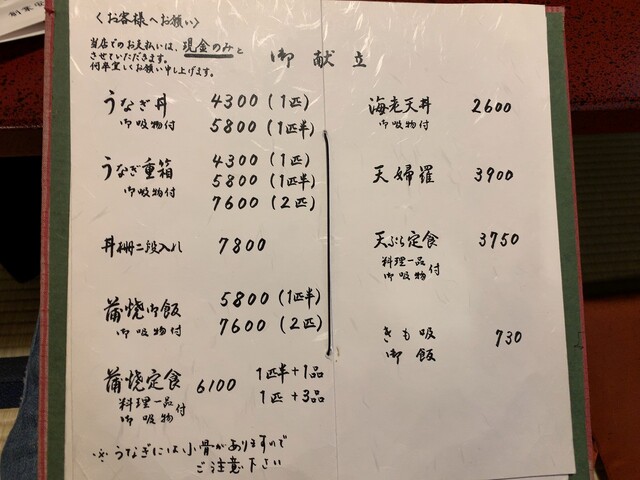 〈お客様へお願い〉
当店でのお支払いは、現金のみと
させていただきます。
何卒宜しくお願い申し上げます。
御献立
うなぎ丼 4300(1匹)
御吸物付 5800(1匹半)
うなぎ重箱 4300(1匹)
御吸物付 5800(1匹半)
7600(2匹)
丼 二段入れ 7800
蒲焼御飯 5800(1匹半)
御吸物付 7600(2匹)
蒲焼定食 6100 1匹半+1品
料理一品 1匹+3品
御吸物付
※うなぎには小骨がありますので
ご注意下さい
海老天丼 2600
御吸物付
天婦羅 3900
天ぷら定食 3750
料理一品
御吸物付
きも吸 730
御飯